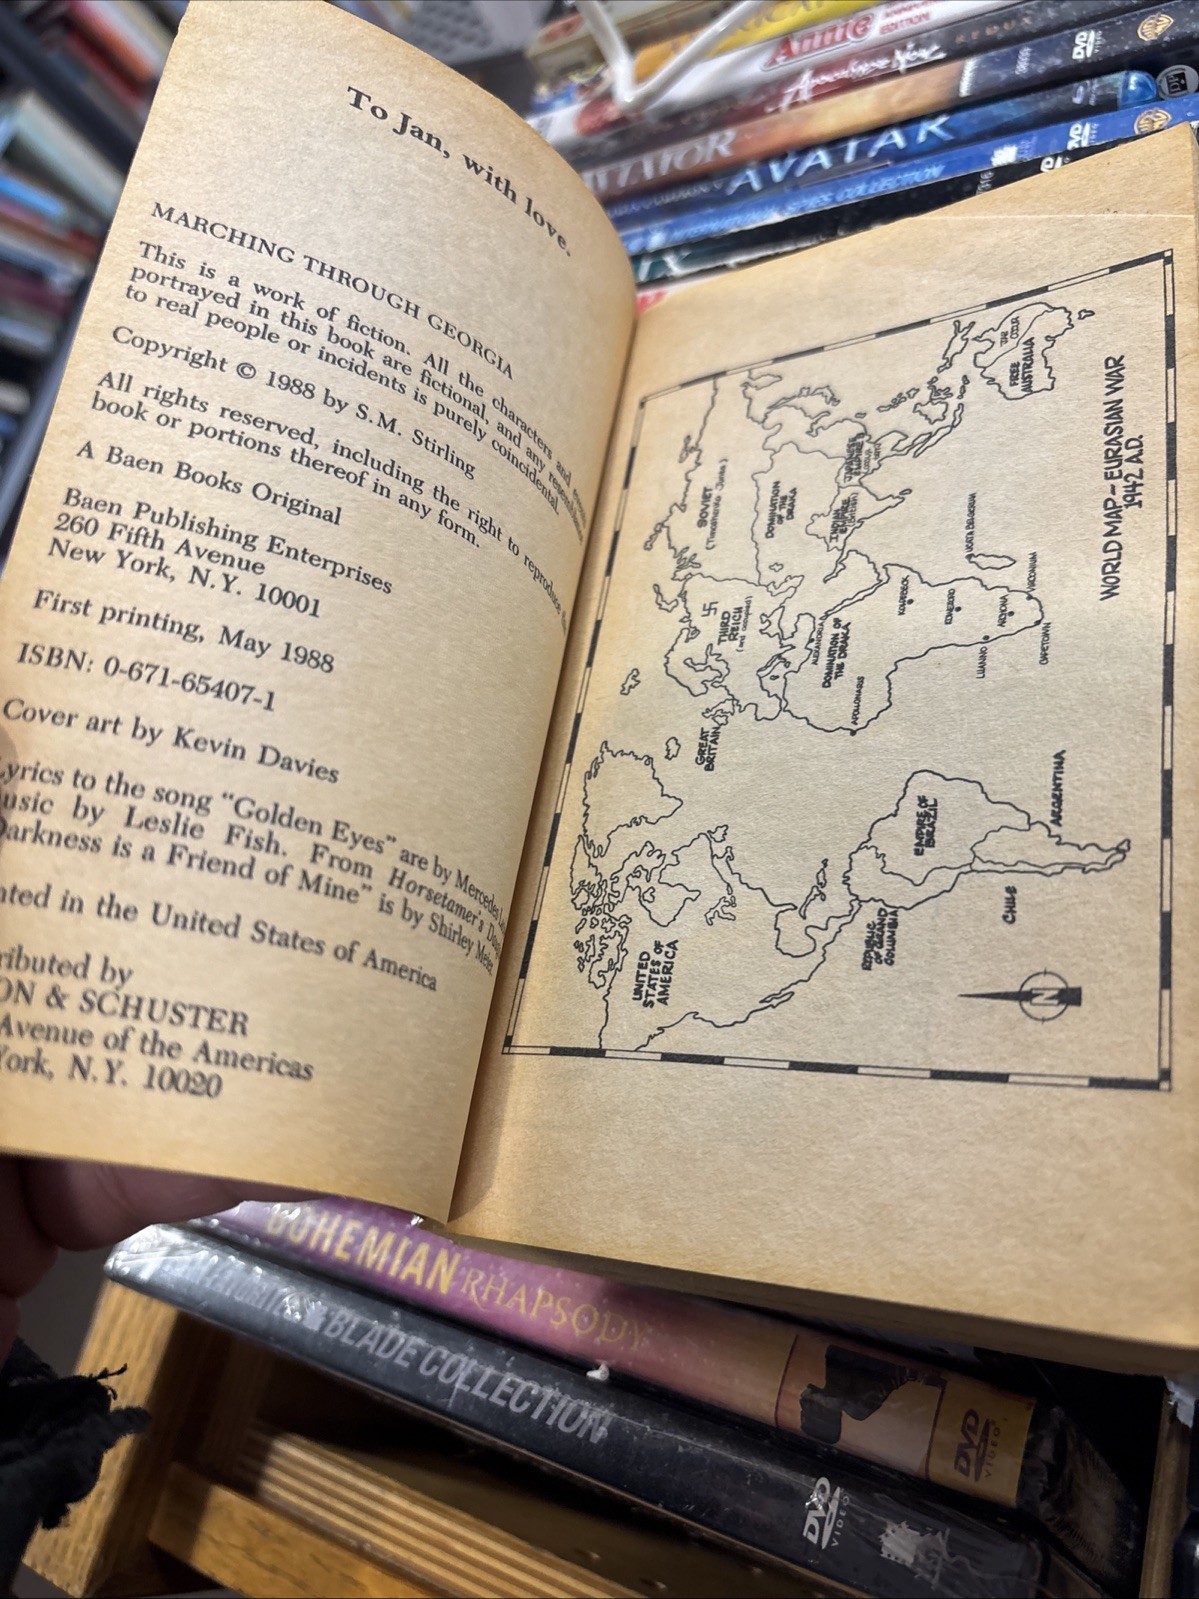 To Jan, with love.
MARCHING THROUGH GEORGIA
This is a work of fiction. All the characters and
portrayed in this book are fictional, and any resemblance
to real people or incidents is purely coincidental.
Copyright © 1988 by S.M. Stirling
All rights reserved, including the right to reproduce
book or portions thereof in any form.
A Baen Books Original
Baen Publishing Enterprises
260 Fifth Avenue
New York, N.Y. 10001
First printing, May 1988
ISBN: 0-671-65407-1
Cover art by Kevin Davies
Lyrics to the song “Golden Eyes” are by Mercedes
Music by Leslie Fish. From Horsetamer's
Darkness is a Friend of Mine” is by Shirley Meier
nted in the United States of America
ributed by
ON & SCHUSTER
Avenue of the Americas
York, N.Y. 10020
WORLD MAP – EURASIAN WAR
1942 A.D.
UNITED
STATES OF
AMERICA
REPUBLIC
OF GRAND
COLUMBIA
EMPIRE OF
BRAZIL
CHILE
ARGENTINA
GREAT
BRITAIN
THIRD
REICH
SOVIET
DOMINATION OF
THE DRAKA
APOLLONARIS
ALEXANDRIA
LUANNO
CAPETOWN
ARCHONA
VIRCONIUM
DOMINATION
OF THE
DRAKA
INDIAN
EMPIRE
JAPANESE
EMPIRE
FREE
AUSTRALIA
N
Annie
EDITION
REDUX
DVD
VIDEO
AVATAR
COLLECTION
DVD
DVD
BOHEMIAN RHAPSODY
DVD
VIDEO
BLADE COLLECTION
DVD
VIDEO